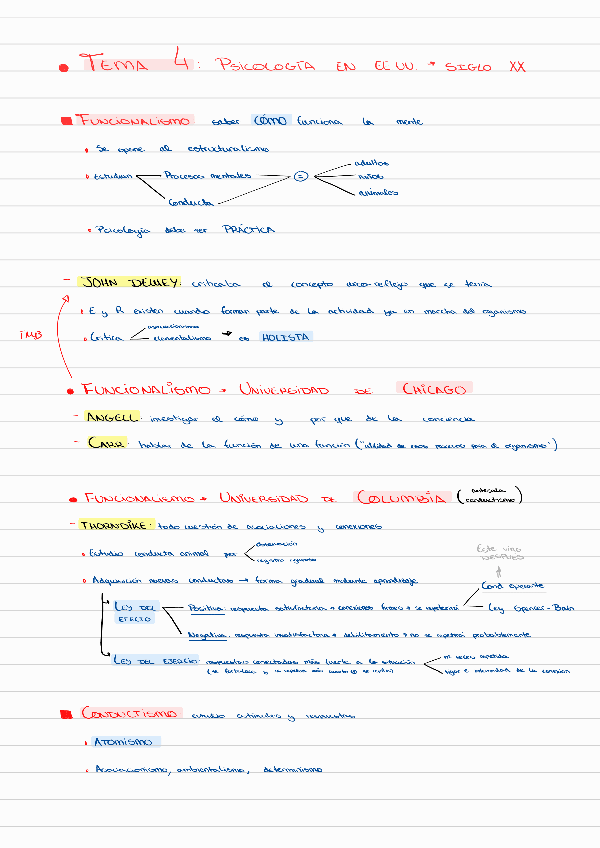 • TEMA 4: PSICOLOGÍA EN EEUU. → SIGLO XX
■ FUNCIONALISMO saber CÓMO funciona la mente
• Se opone al estructuralismo
• Estudian Procesos mentales = adultos
niños
Conducta animales
• Psicología debe ser PRÁCTICA
- JOHN DEWEY: criticaba el concepto arco-reflejo que se tenía
• E y R existen cuando forman parte de la actividad ya en marcha del organismo
IMB
• Crítica asociacionismo
elementalismo → es HOLISTA
• FUNCIONALISMO → UNIVERSIDAD DE CHICAGO
- ANGELL: investigar el cómo y por qué de la conciencia
- CARR: hablar de la función de una función ("utilidad de esos procesos para el organismo")
• FUNCIONALISMO → UNIVERSIDAD DE COLUMBIA (antesala
conductismo)
- THORNDIKE: todo cuestión de asociaciones y conexiones
• Estudio conducta animal por observación
registro respuestas
Este vino
DESPUÉS
• Adquisición nuevas conductas → forma gradual mediante aprendizaje
Cond operante
LEY DEL
EFECTO
Positiva: respuesta satisfactoria → conexiones fuertes → se repetirá
Ley Spencer-Bain
Negativa: respuesta insatisfactoria → debilitamiento → no se repetirá probablemente
LEY DEL EJERCICIO: respuestas conectadas más fuerte a la situación
nº veces repetida
vigor e intensidad de la conexión
■ CONDUCTISMO estudio estímulos y respuestas
• ATOMISMO
• Asociacionismo, ambientalismo, determinismo